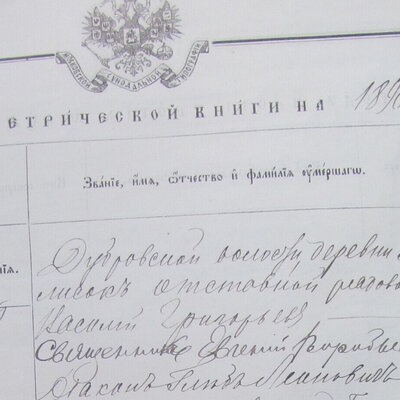 МОСКОВСКОЙ СѴНОДАЛЬНОЙ ТИПОГРАФІИ
ЕТРИ́ЧЕСКОЙ КНИ́ГИ НА 189
Зва́нїе, и҆́мѧ, ѻ҆́тчество и҆ фами́лїѧ ᲂу҆ме́ршагѡ.
нїѧ.
Дубровской волости, деревни
лисокъ отставной рядово
Василій Григорьевъ
Священникъ Евгеній Воробье
Діаконъ Глѣбъ Леоновичъ